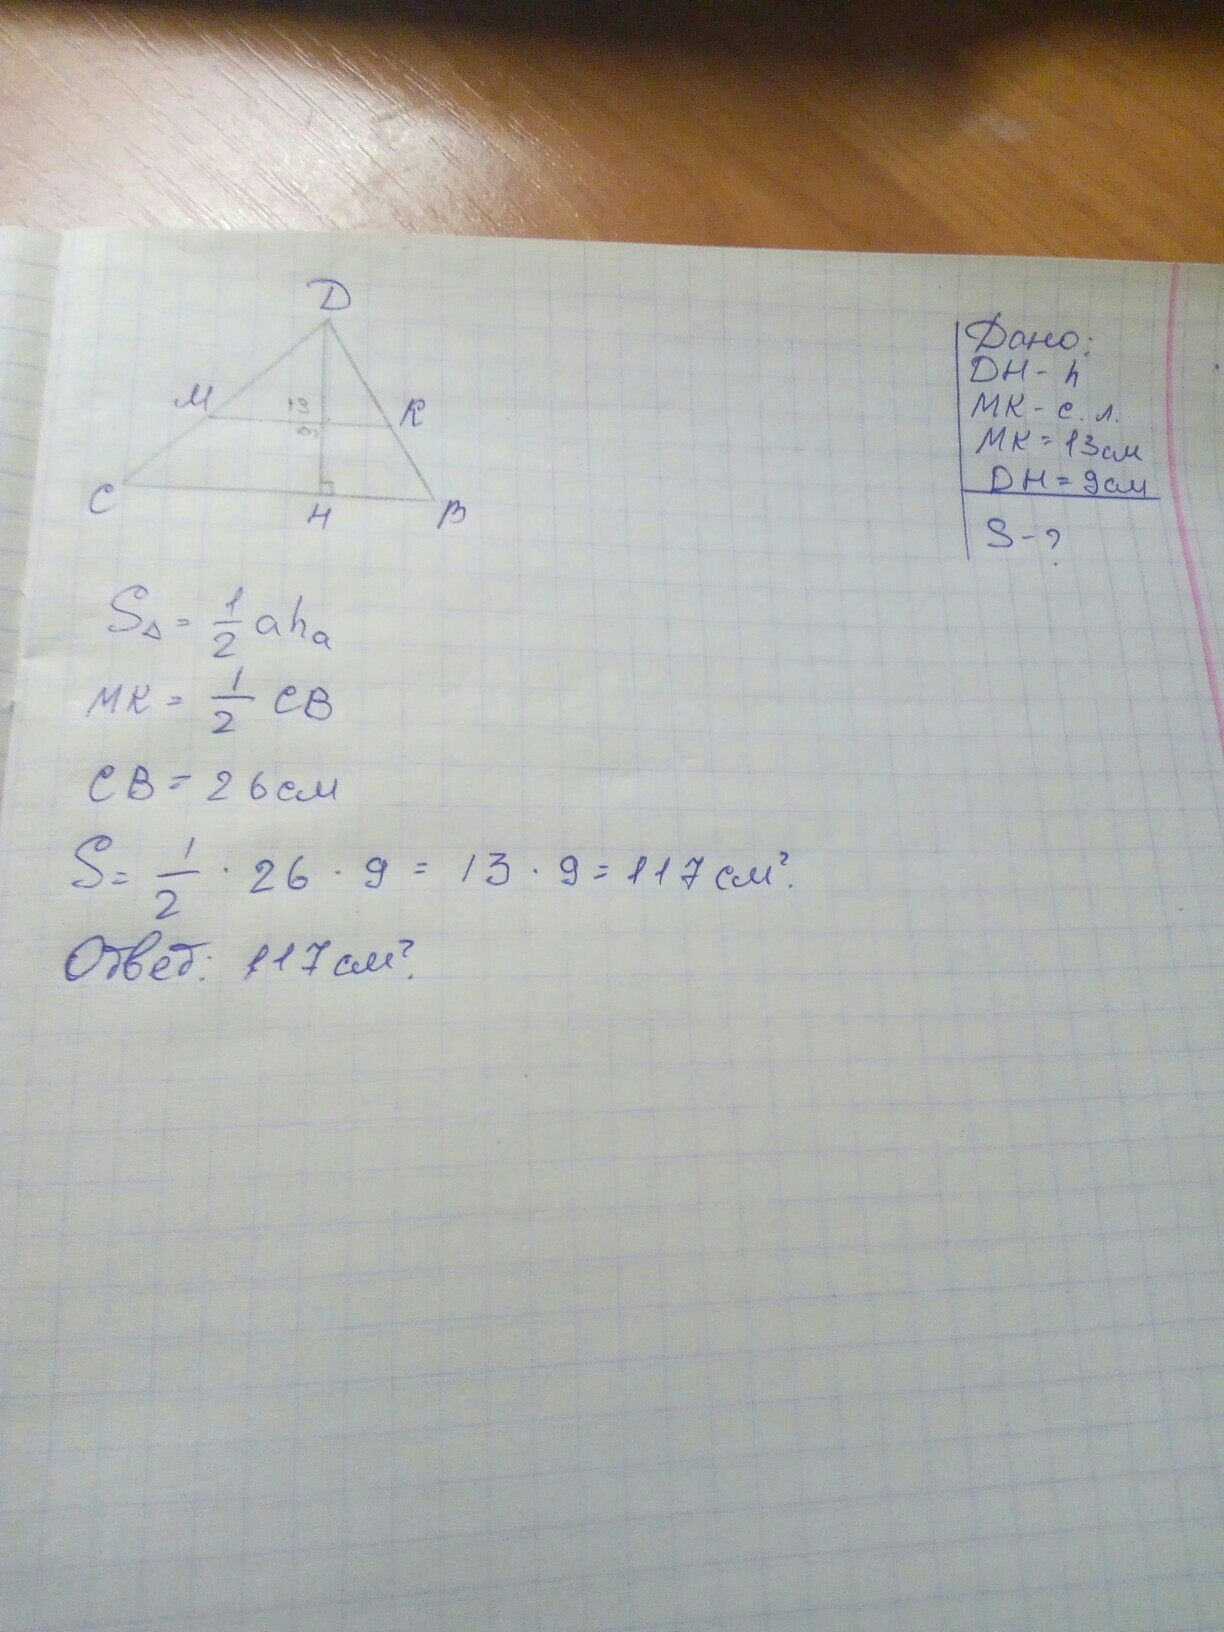 D
M
9
K
C
H
B
Дано:
DH - h
MK - с. л.
MK = 13см
DH = 9см
S - ?
S△ = 1/2 ahₐ
MK = 1/2 CB
CB = 26см
S = 1/2 · 26 · 9 = 13 · 9 = 117см².
Ответ: 117см².